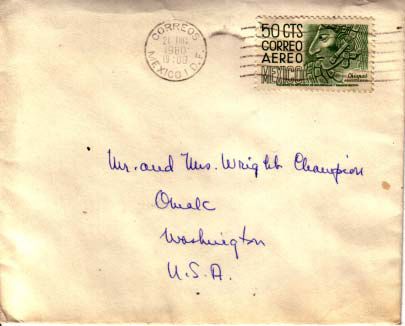 CORREOS
1960
MEXICO 1 D.F.
50 CTS
CORREO
AEREO
MEXICO
Chiapas
Mr. and Mrs. Wright Champion
Omak
Washington
U.S.A.